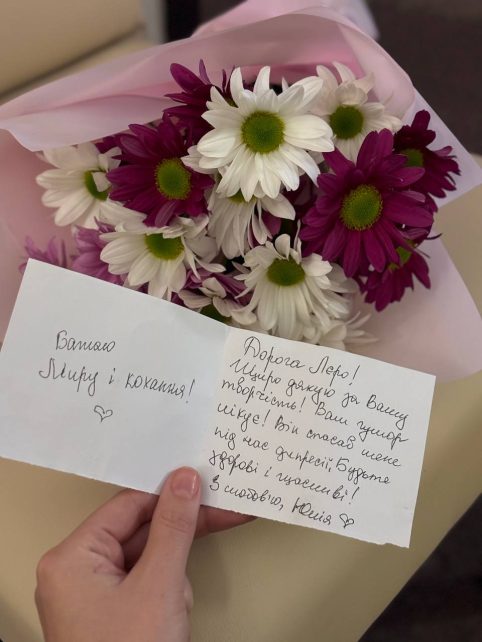 Бажаю
Миру і кохання!
Дорога Леро!
Щиро дякую за Вашу
творчість! Ваш гумор
лікує! Він спасав мене
під час дипресії. Будьте
здорові і щасливі!
З любов'ю, Юлія